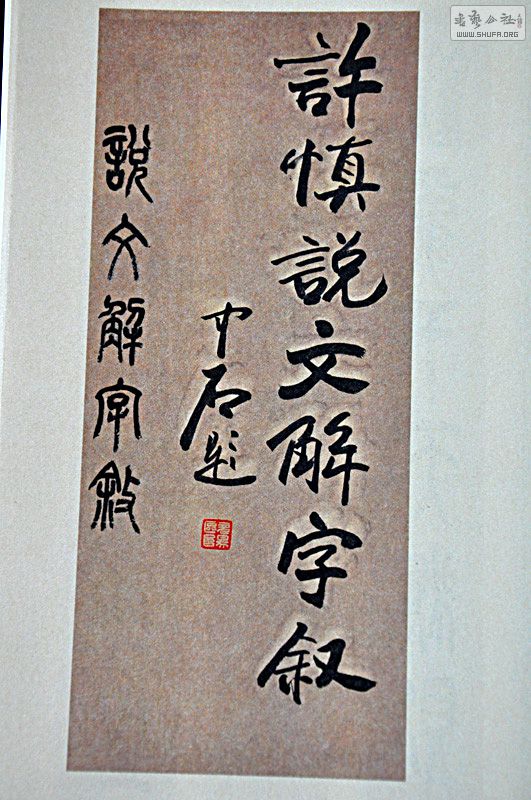 許慎說文解字叙
中石题
說文解字敘
書艺公社
WWW.SHUFA.ORG